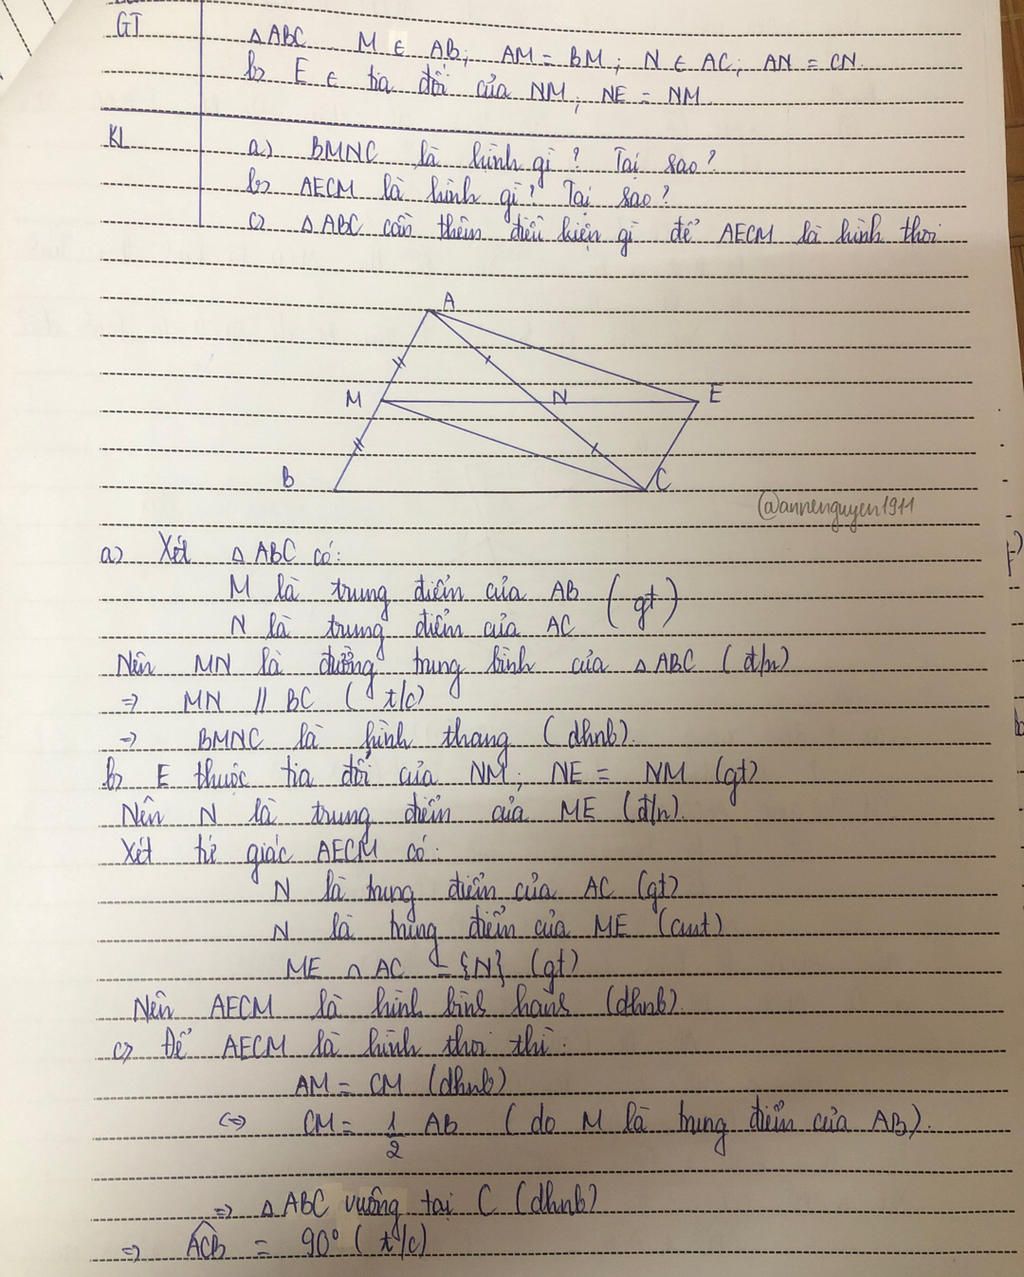 GT
ΔABC M ∈ AB; AM = BM; N ∈ AC; AN = CN.
b) E ∈ tia đối của NM; NE = NM.
KL
a) BMNC là hình gì? Tại sao?
b) AECM là hình gì? Tại sao?
c) ΔABC cần thêm điều kiện gì để AECM là hình thoi
A
M N E
B C
@annenguyen1911
a) Xét ΔABC có:
M là trung điểm của AB (gt)
N là trung điểm của AC
Nên MN là đường trung bình của ΔABC (đ/n)
=> MN // BC (t/c)
=> BMNC là hình thang (dhnb).
b) E thuộc tia đối của NM; NE = NM (gt)
Nên N là trung điểm của ME (đ/n).
Xét tứ giác AECM có:
N là trung điểm của AC (gt)
N là trung điểm của ME (cmt)
ME ∩ AC = {N} (gt)
Nên AECM là hình bình hành (dhnb).
c) Để AECM là hình thoi thì:
AM = CM (dhnb)
<=> CM = 1/2 AB (do M là trung điểm của AB).
=> ΔABC vuông tại C (dhnb)
=> ACB = 90° (t/c)